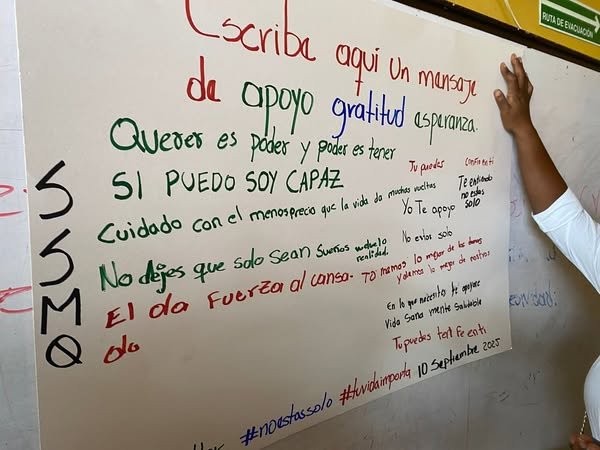 RUTA DE EVACUACIÓN
Escriba aquí un mensaje
de apoyo gratitud esperanza.
Querer es poder y poder es tener
SI PUEDO SOY CAPAZ
Cuidado con el menosprecio que la vida da muchas vueltas
No dejes que solo sean sueños vuelvelo realidad.
El da fuerza al cansa-
do
SSMQ
Tu puedes
confia en ti
Te entiendo
no estas
solo
Yo Te apoyo
No estas solo
Tomamos lo mejor de los demas
y damos lo mejor de nostros
En lo que necesites te apoyare
Vida Sana mente Saludable
Tu puedes ten Fe en ti
10 Septiembre 2025
#noestassolo #tuvidaimporta